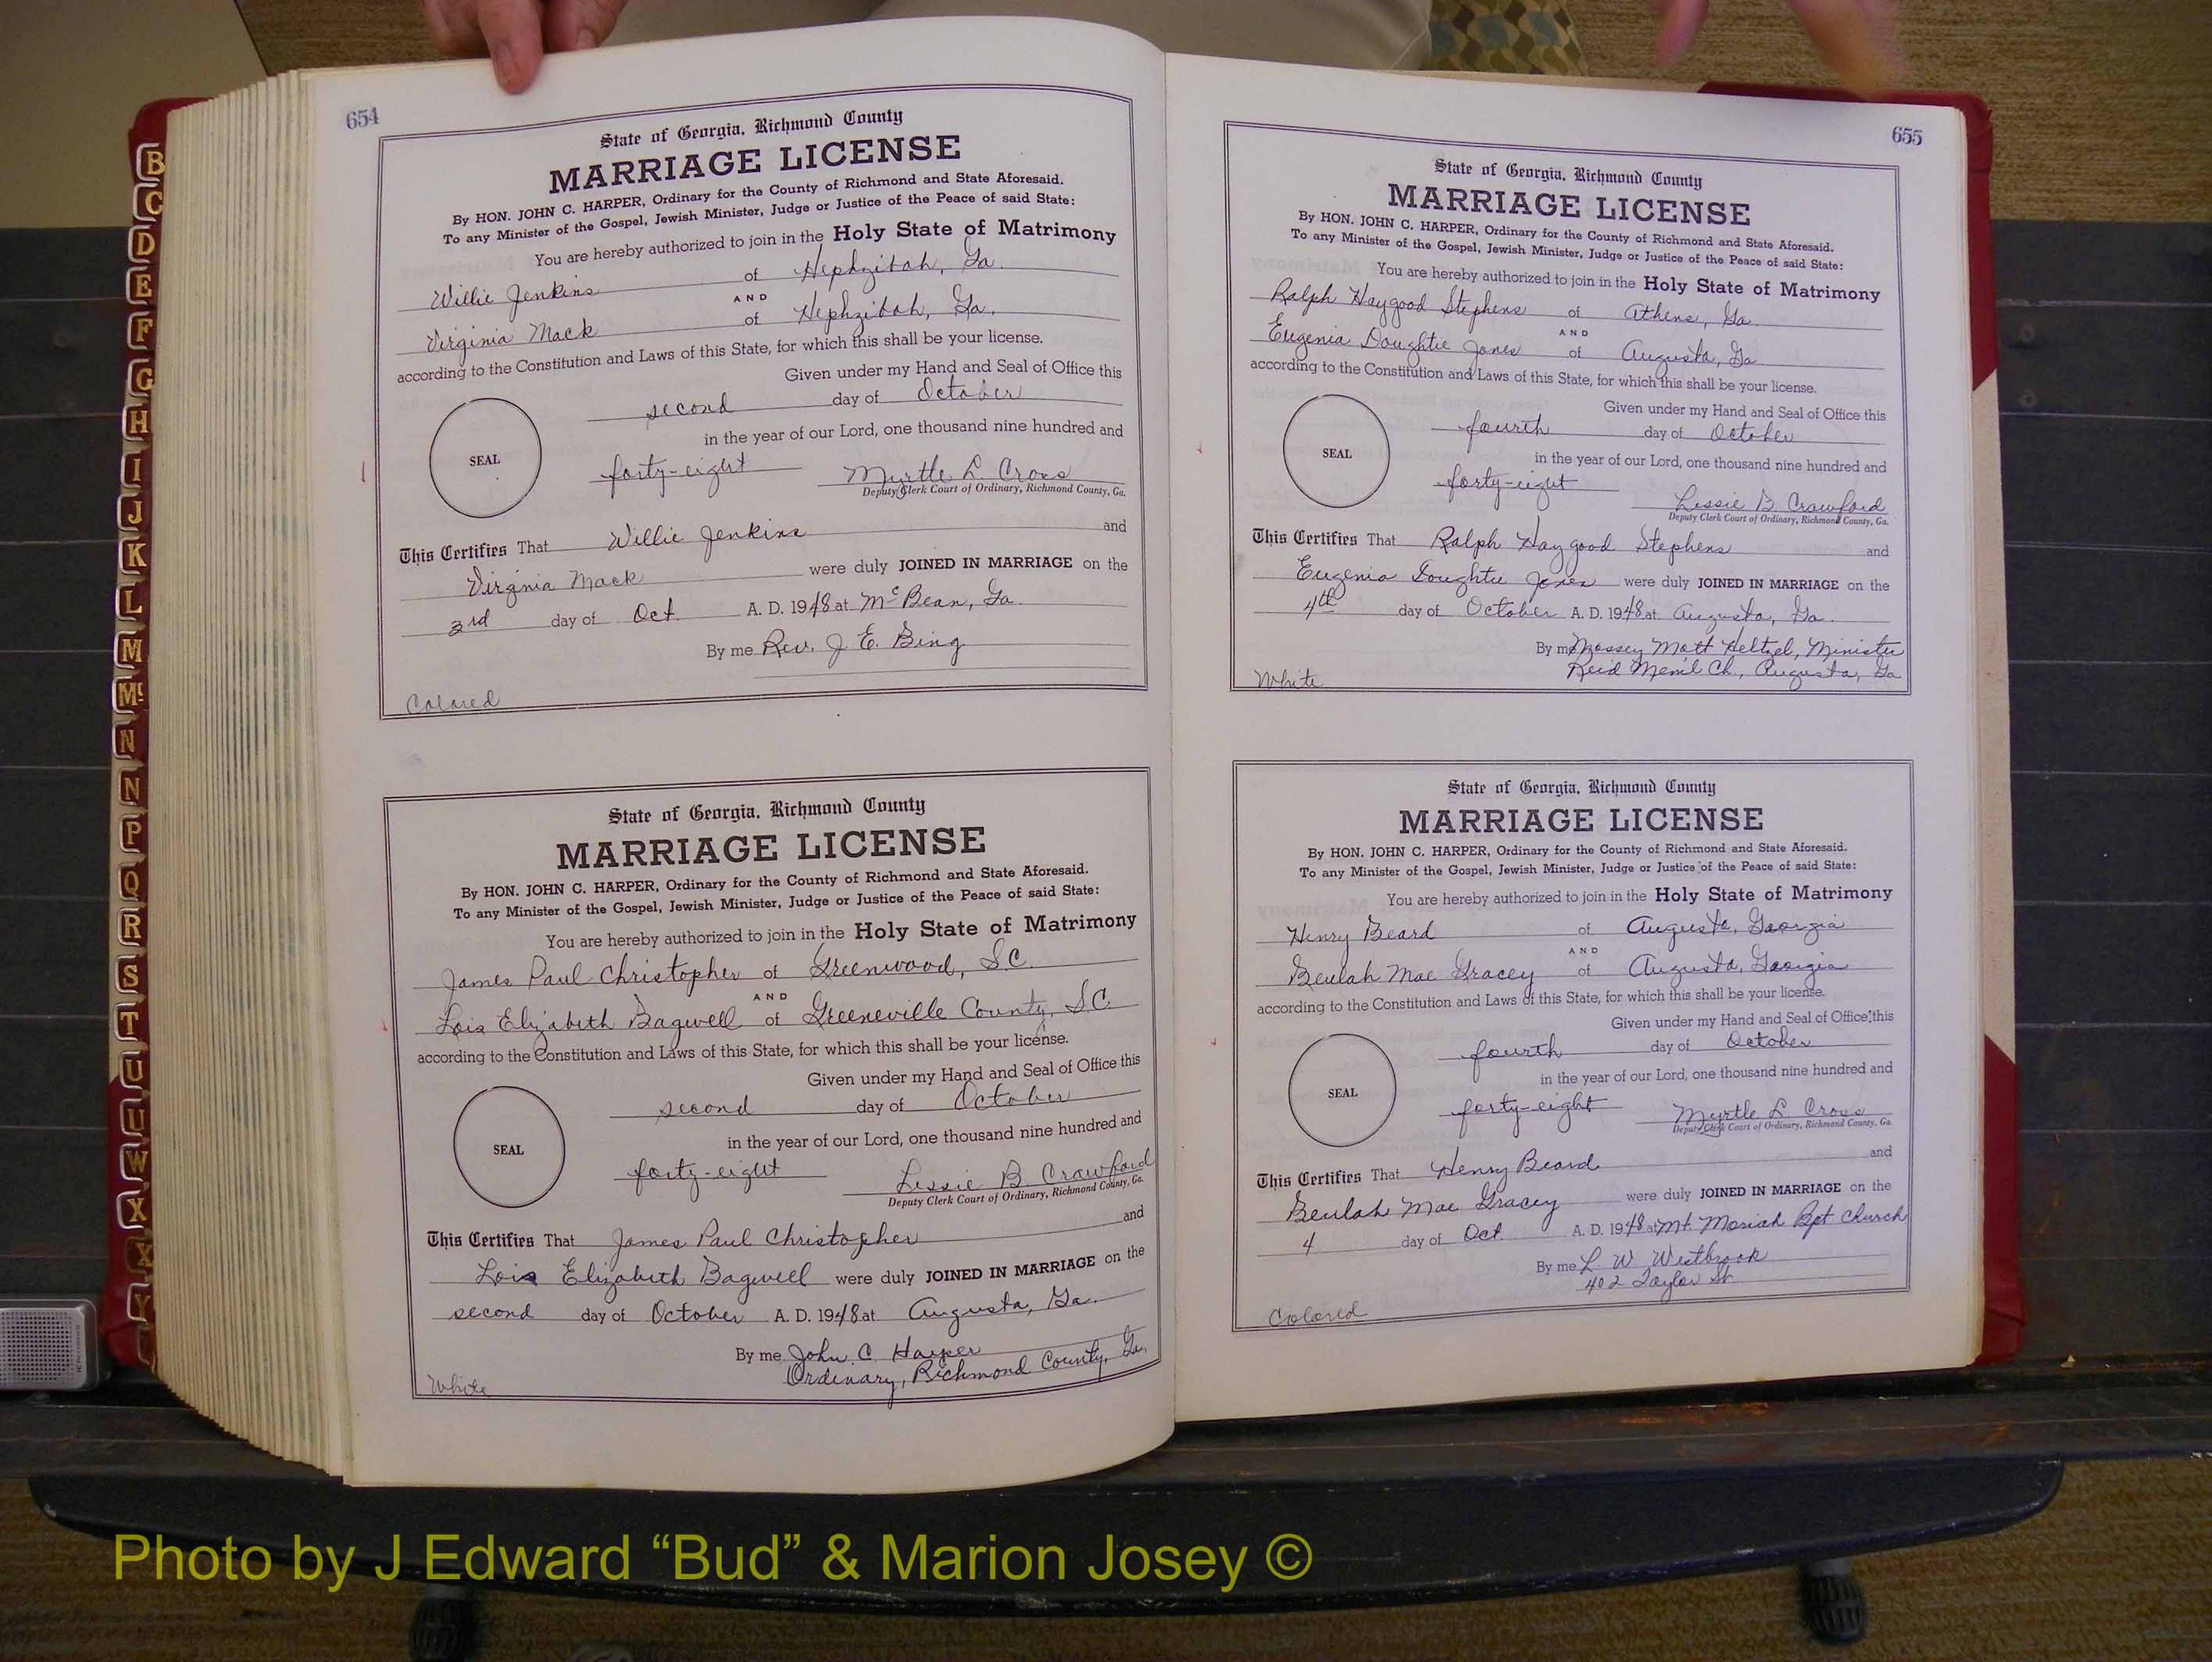 654
State of Georgia, Richmond County
MARRIAGE LICENSE
By HON. JOHN C. HARPER, Ordinary for the County of Richmond and State Aforesaid.
To any Minister of the Gospel, Jewish Minister, Judge or Justice of the Peace of said State:
You are hereby authorized to join in the Holy State of Matrimony
Willie Jenkins of Hephzibah, Ga.
AND
Virginia Mack of Hephzibah, Ga.
according to the Constitution and Laws of this State, for which this shall be your license.
Given under my Hand and Seal of Office this
second day of October
in the year of our Lord, one thousand nine hundred and
SEAL
forty-eight Myrtle L. Cross
Deputy Clerk Court of Ordinary, Richmond County, Ga.
This Certifies That Willie Jenkins and
Virginia Mack were duly JOINED IN MARRIAGE on the
3rd day of Oct. A. D. 1948 at McBean, Ga.
By me Rev. J. E. Bing
Colored
State of Georgia, Richmond County
MARRIAGE LICENSE
By HON. JOHN C. HARPER, Ordinary for the County of Richmond and State Aforesaid.
To any Minister of the Gospel, Jewish Minister, Judge or Justice of the Peace of said State:
You are hereby authorized to join in the Holy State of Matrimony
James Paul Christopher of Greenwood, S.C.
AND
Lois Elizabeth Bagwell of Greeneville County, S.C.
according to the Constitution and Laws of this State, for which this shall be your license.
Given under my Hand and Seal of Office this
second day of October
in the year of our Lord, one thousand nine hundred and
SEAL
forty-eight Lessie B. Crawford
Deputy Clerk Court of Ordinary, Richmond County, Ga.
This Certifies That James Paul Christopher and
Lois Elizabeth Bagwell were duly JOINED IN MARRIAGE on the
second day of October A. D. 1948 at Augusta, Ga.
By me John C. Harper
Ordinary, Richmond County, Ga.
White
655
State of Georgia, Richmond County
MARRIAGE LICENSE
By HON. JOHN C. HARPER, Ordinary for the County of Richmond and State Aforesaid.
To any Minister of the Gospel, Jewish Minister, Judge or Justice of the Peace of said State:
You are hereby authorized to join in the Holy State of Matrimony
Ralph Haygood Stephens of Athens, Ga.
AND
Eugenia Doughtie Jones of Augusta, Ga
according to the Constitution and Laws of this State, for which this shall be your license.
Given under my Hand and Seal of Office this
fourth day of October
SEAL
in the year of our Lord, one thousand nine hundred and
forty-eight
Lessie B. Crawford
Deputy Clerk Court of Ordinary, Richmond County, Ga.
This Certifies That Ralph Haygood Stephens and
Eugenia Doughtie Jones were duly JOINED IN MARRIAGE on the
4th day of October A. D. 1948 at Augusta, Ga.
By me Massey Mott Heltzel, Minister
Reid Mem'l Ch., Augusta, Ga
White
State of Georgia, Richmond County
MARRIAGE LICENSE
By HON. JOHN C. HARPER, Ordinary for the County of Richmond and State Aforesaid.
To any Minister of the Gospel, Jewish Minister, Judge or Justice of the Peace of said State:
You are hereby authorized to join in the Holy State of Matrimony
Henry Beard of Augusta, Georgia
AND
Beulah Mae Gracey of Augusta, Georgia
according to the Constitution and Laws of this State, for which this shall be your license.
Given under my Hand and Seal of Office this
fourth day of October
in the year of our Lord, one thousand nine hundred and
SEAL
forty-eight Myrtle L. Cross
Deputy Clerk Court of Ordinary, Richmond County, Ga.
This Certifies That Henry Beard and
Beulah Mae Gracey were duly JOINED IN MARRIAGE on the
4 day of Oct. A. D. 1948 at Mt. Moriah Bpt Church
By me L. W. Westbrook
402 Taylor St.
Colored
B
C
D
E
F
G
H
I
J
K
L
M
Mc
N
N
P
Q
R
S
T
U
U
W
X
X
Y
Photo by J Edward “Bud” & Marion Josey ©